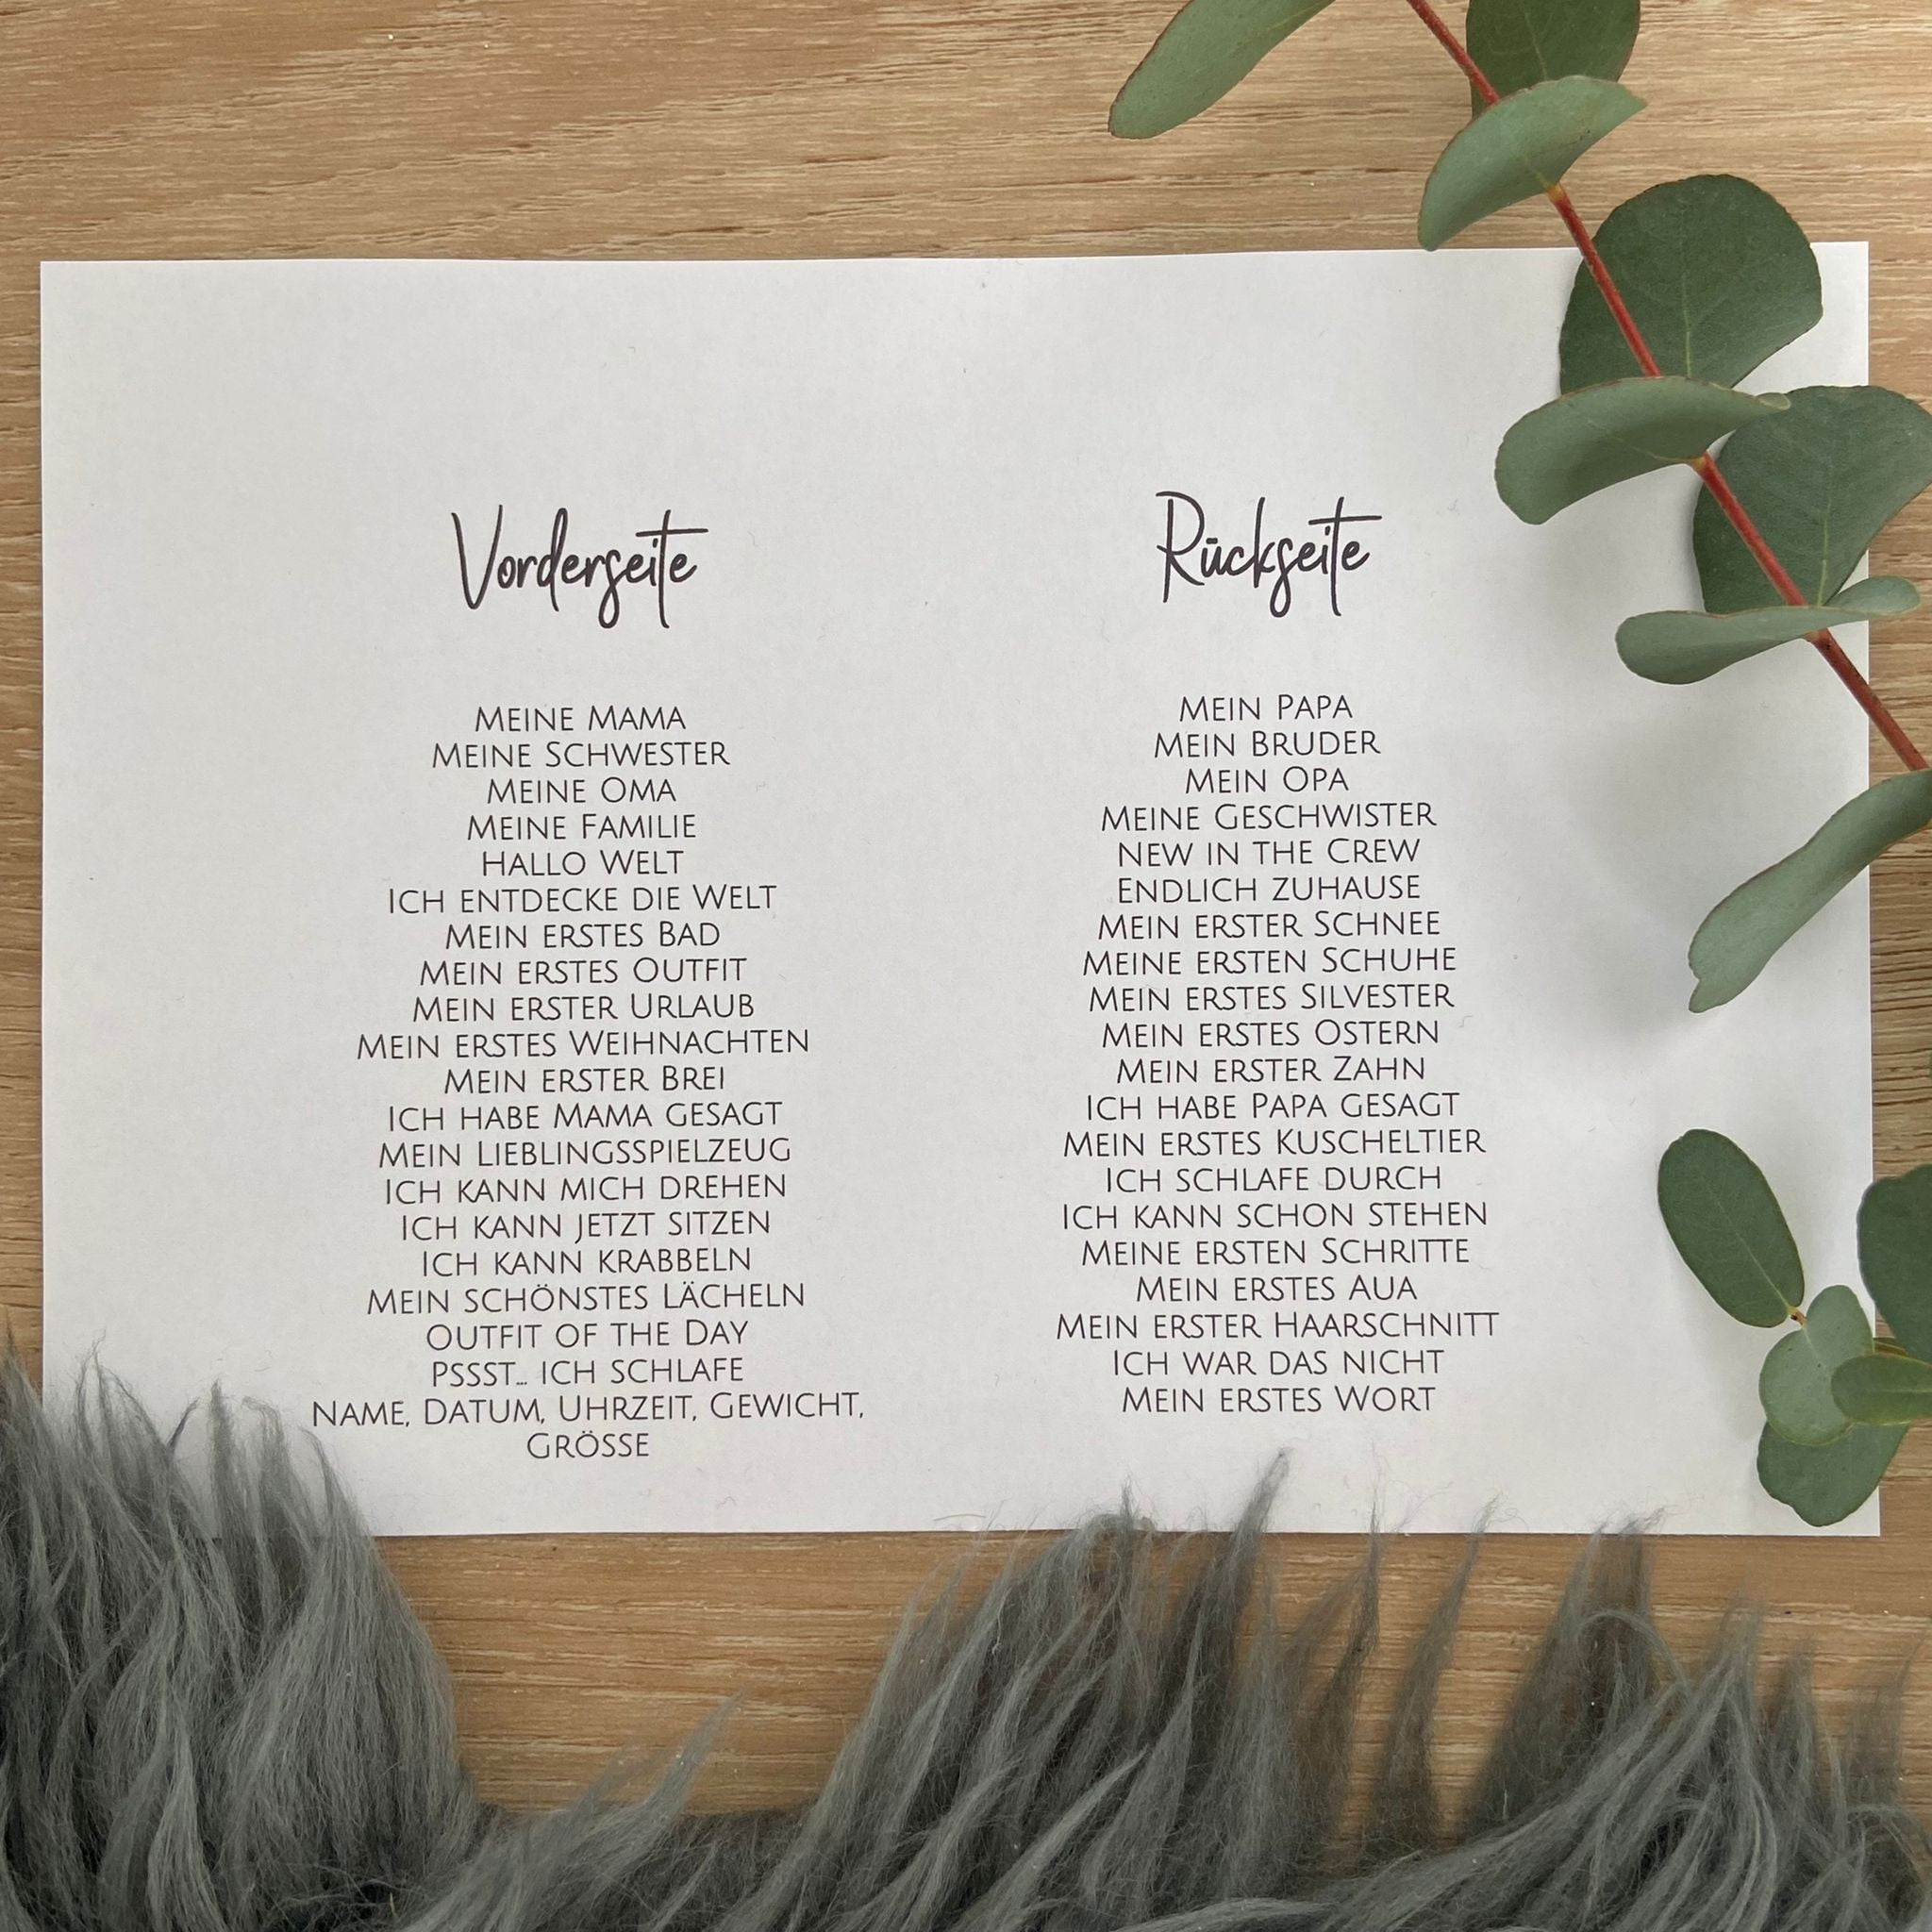 Vorderseite
Meine Mama
Meine Schwester
Meine Oma
Meine Familie
Hallo Welt
Ich entdecke die Welt
Mein erstes Bad
Mein erstes Outfit
Mein erster Urlaub
Mein erstes Weihnachten
Mein erster Brei
Ich habe Mama gesagt
Mein Lieblingsspielzeug
Ich kann mich drehen
Ich kann jetzt sitzen
Ich kann krabbeln
Mein schönstes Lächeln
Outfit of the Day
Pssst... ich schlafe
Name, Datum, Uhrzeit, Gewicht,
Grösse
Rückseite
Mein Papa
Mein Bruder
Mein Opa
Meine Geschwister
New in the Crew
Endlich zuhause
Mein erster Schnee
Meine ersten Schuhe
Mein erstes Silvester
Mein erstes Ostern
Mein erster Zahn
Ich habe Papa gesagt
Mein erstes Kuscheltier
Ich schlafe durch
Ich kann schon stehen
Meine ersten Schritte
Mein erstes Aua
Mein erster Haarschnitt
Ich war das nicht
Mein erstes Wort